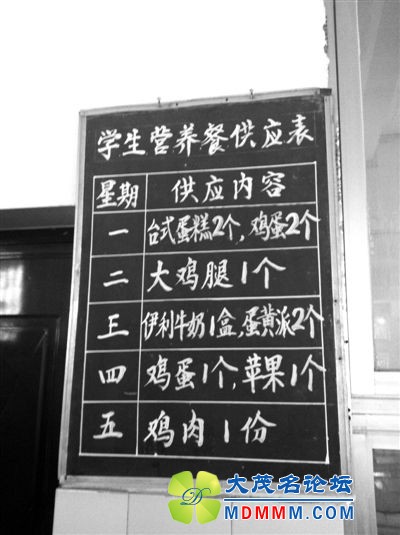 学生营养餐供应表
星期 供应内容
一 台式蛋糕2个,鸡蛋2个
二 大鸡腿1个
三 伊利牛奶1盒,蛋黄派2个
四 鸡蛋1个,苹果1个
五 鸡肉1份
大茂名论坛
MDMMM.COM